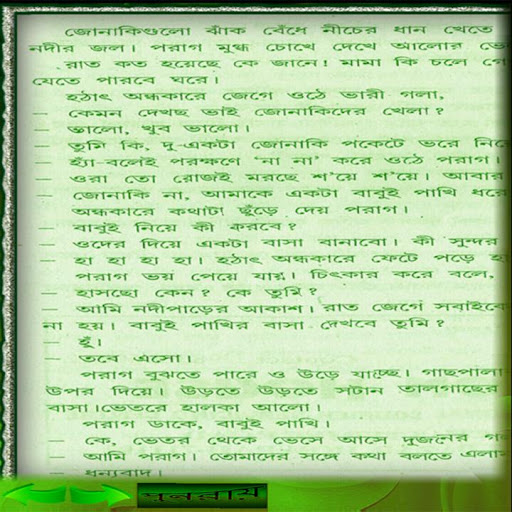 জোনাকিগুলো ঝাঁক বেঁধে নীচের ধান খেতে
নদীর জল। পরাগ মুগ্ধ চোখে দেখে আলোর
রাত কত হয়েছে কে জানে! মামা কি চলে
যেতে পারবে ঘরে।
হঠাৎ অন্ধকারে জেগে ওঠে ভারী গলা,
— কেমন দেখছ ভাই জোনাকিদের খেলা?
— ভালো, খুব ভালো।
— তুমি কি, দু-একটা জোনাকি পকেটে ভরে
— হ্যাঁ-বলেই পরক্ষণে 'না না' করে ওঠে পরাগ।
— ওরা তো রোজই মরছে শ'য়ে শ'য়ে। আবার
— জোনাকি না, আমাকে একটা বাবুই পাখি
অন্ধকারে কথাটা ছুঁড়ে দেয় পরাগ।
— বাবুই নিয়ে কী করবে?
— ওদের দিয়ে একটা বাসা বানাবো। কী সুন্দর
— হা হা হা হা। হঠাৎ অন্ধকারে ফেটে পড়ে
পরাগ ভয় পেয়ে যায়। চিৎকার করে বলে,
— হাসছো কেন? কে তুমি?
— আমি নদীপাড়ের আকাশ। রাত জেগে
না হয়। বাবুই পাখির বাসা দেখবে তুমি?
— হুঁ।
— তবে এসো।
পরাগ বুঝতে পারে ও উড়ে যাচ্ছে। গাছপালা
উপর দিয়ে। উড়তে উড়তে সটান তালগাছের
বাসা।ভেতরে হালকা আলো।
পরাগ ডাকে, বাবুই পাখি।
— কে, ভেতর থেকে ভেসে আসে দুজনের
— আমি পরাগ। তোমাদের সঙ্গে কথা বলতে
— ধন্যবাদ।
পুনরায়